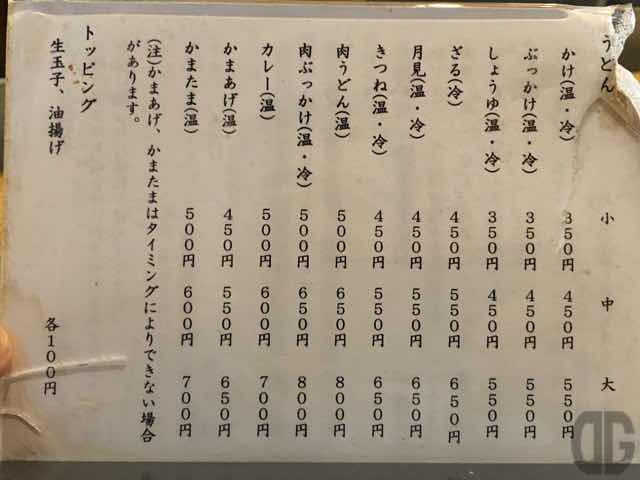 うどん 小 中 大
かけ(温・冷) ３５０円 ４５０円 ５５０円
ぶっかけ(温・冷) ３５０円 ４５０円 ５５０円
しょうゆ(温・冷) ３５０円 ４５０円 ５５０円
ざる(冷) ４５０円 ５５０円 ６５０円
月見(温・冷) ４５０円 ５５０円 ６５０円
きつね(温・冷) ４５０円 ５５０円 ６５０円
肉うどん(温) ５００円 ６５０円 ８００円
肉ぶっかけ(温・冷) ５００円 ６５０円 ８００円
カレー(温) ５００円 ６００円 ７００円
かまあげ(温) ４５０円 ５５０円 ６５０円
かまたま(温) ５００円 ６００円 ７００円
(注)かまあげ、かまたまはタイミングによりできない場合
があります。
トッピング
生玉子、油揚げ 各１００円
DG